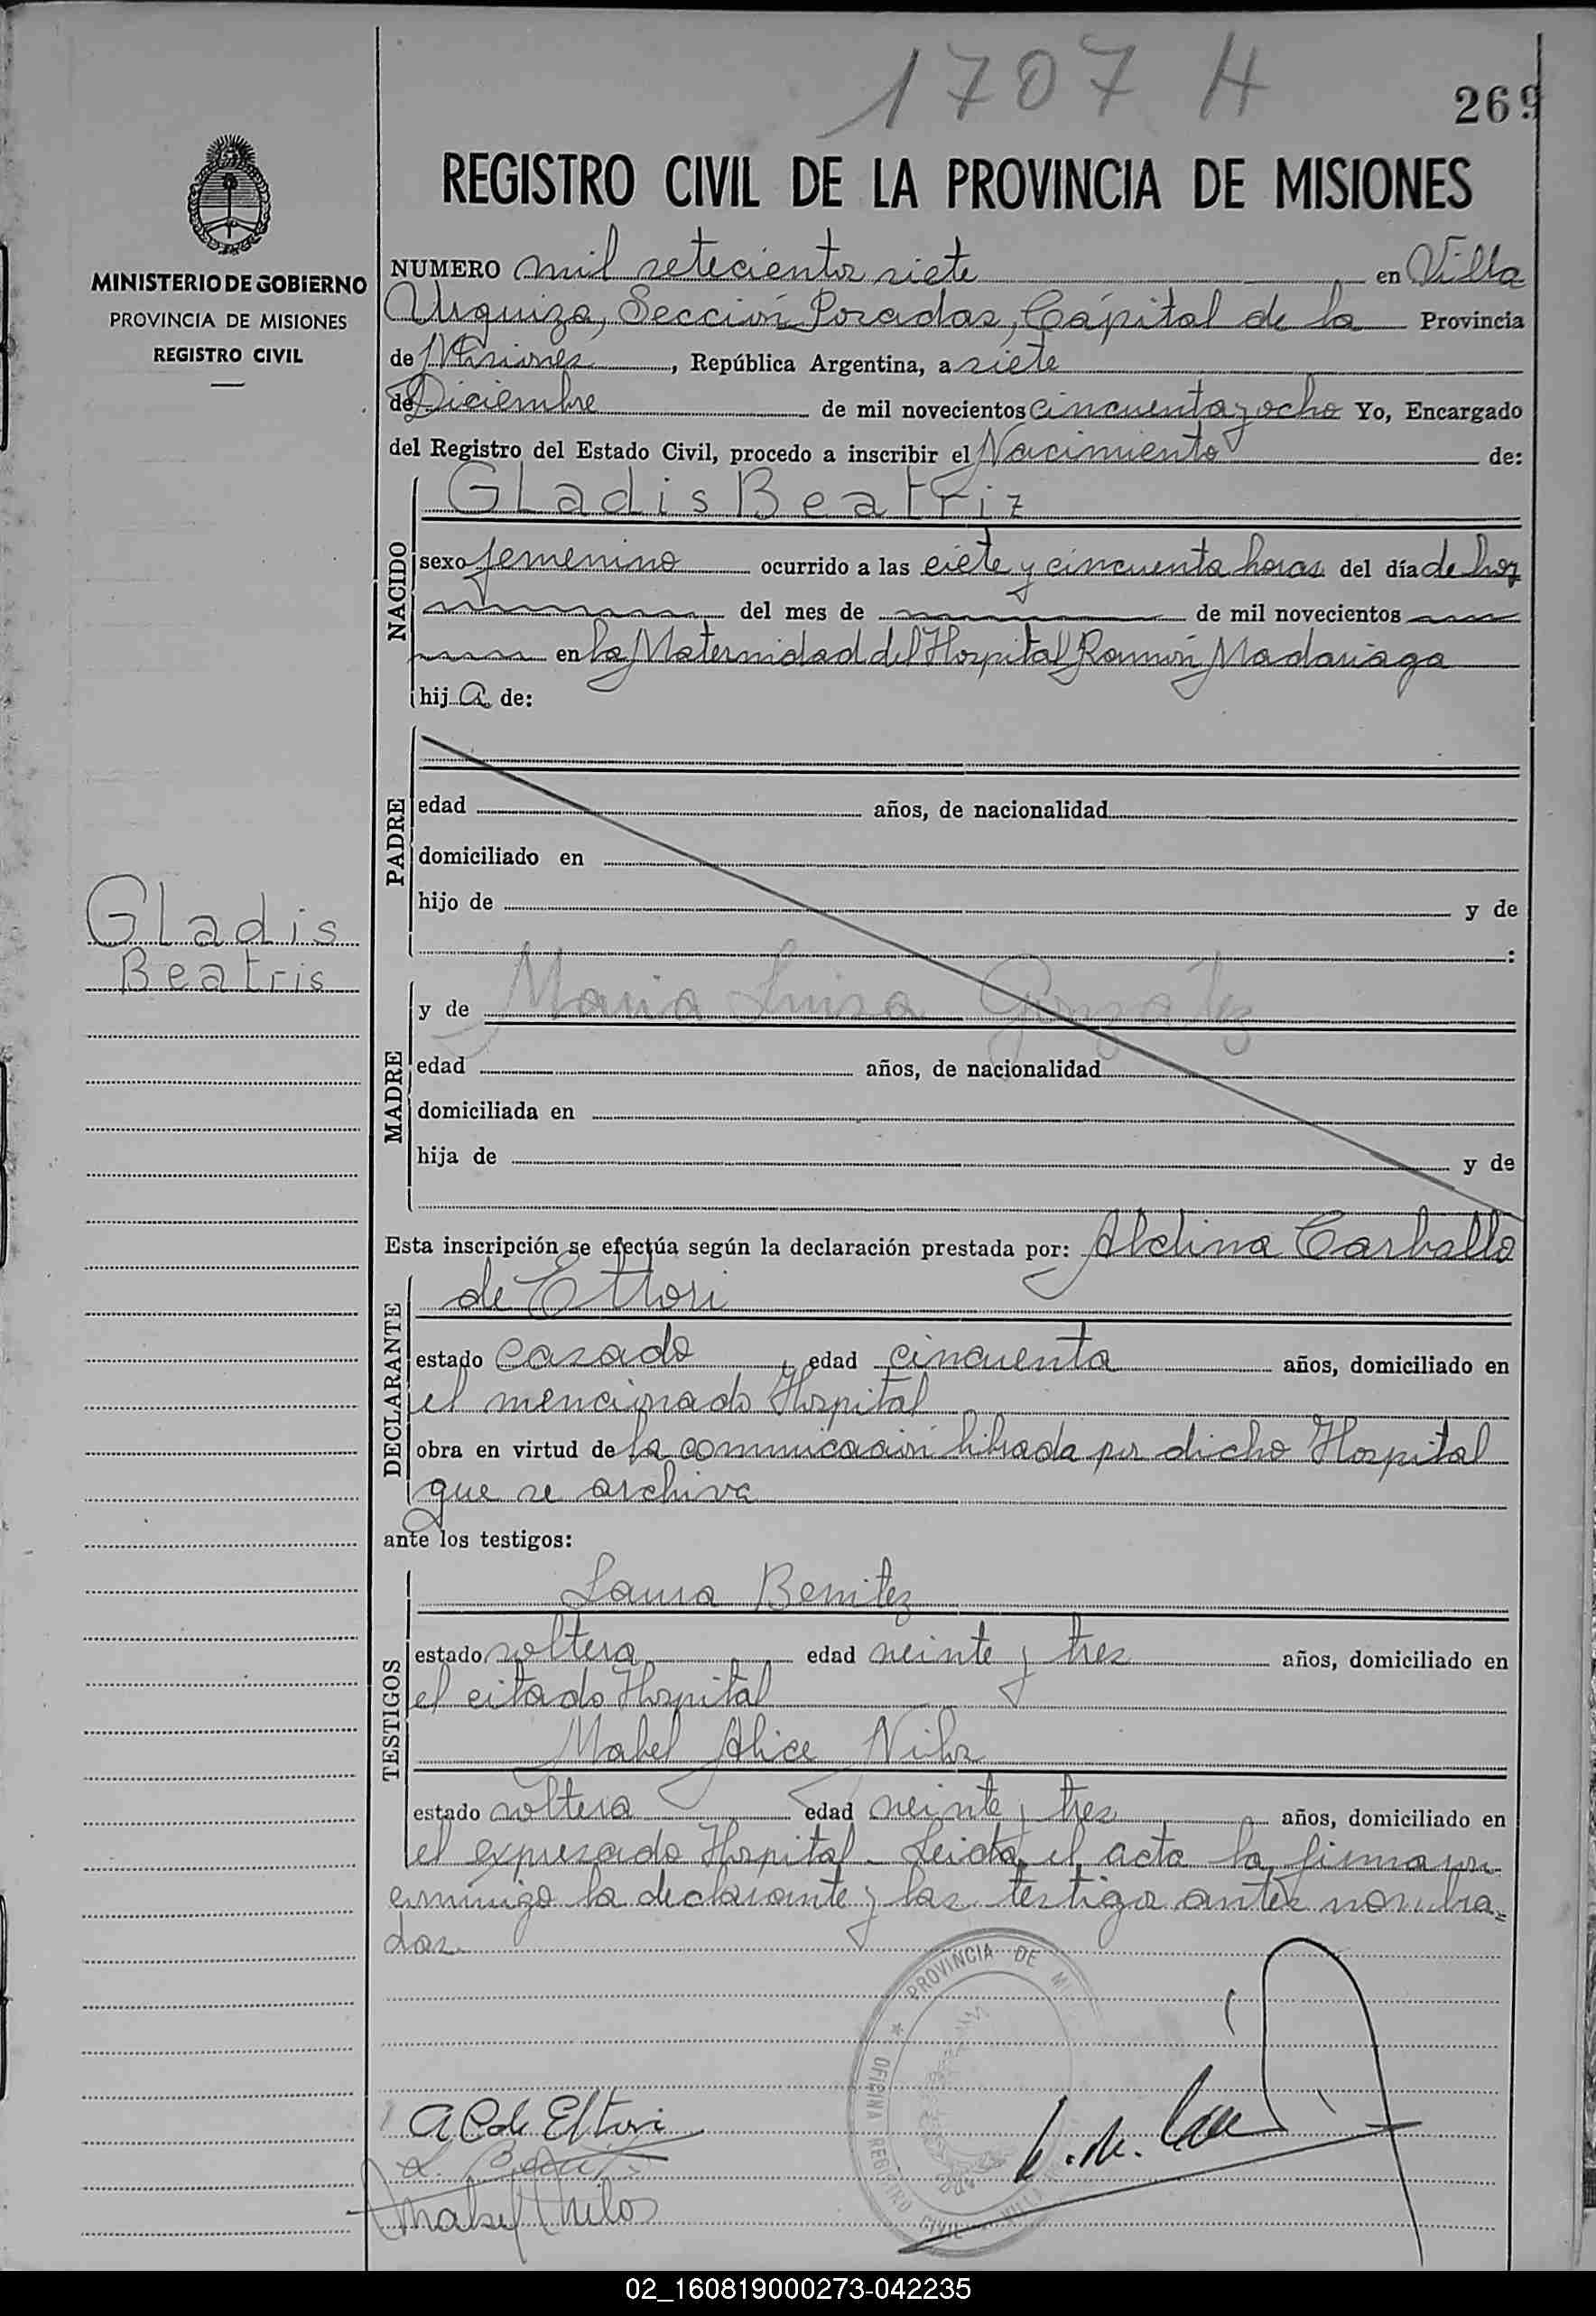 1707 H
269
REGISTRO CIVIL DE LA PROVINCIA DE MISIONES
MINISTERIO DE GOBIERNO
PROVINCIA DE MISIONES
REGISTRO CIVIL
NUMERO mil setecientos siete en Villa
Urquiza, Sección Posadas, Cápital de la Provincia
de Misiones, República Argentina, a siete
de Diciembre de mil novecientos cincuenta y ocho Yo, Encargado
del Registro del Estado Civil, procedo a inscribir el Nacimiento de:
NACIDO
GLadis Beatriz
sexo femenino ocurrido a las siete y cincuenta horas del día de hoy
del mes de de mil novecientos
en la Maternidad del Hospital Ramón Madariaga
hija de:
PADRE
edad años, de nacionalidad
domiciliado en
hijo de y de
:
Gladis
Beatris
MADRE
y de Maria Luisa González
edad años, de nacionalidad
domiciliada en
hija de y de
Esta inscripción se efectúa según la declaración prestada por: Abelina Carballo
DECLARANTE
de Ettori
estado casado, edad cincuenta años, domiciliado en
el mencionado Hospital
obra en virtud de la comunicación librada por dicho Hospital
que se archiva
ante los testigos:
TESTIGOS
Laura Benitez
estado soltera edad veinte y tres años, domiciliado en
el citado Hospital
Mabel Alice Nilos
estado soltera edad veinte y tres años, domiciliado en
el expresado Hospital. Leida el acta la firmaron
conmigo la declarante y las testigos antes nombra=
das.
PROVINCIA DE MI
OFICINA REGISTRO CIVIL VILLA
A C de Ettori
L. Benitez
Mabel Nilos
02_160819000273-042235